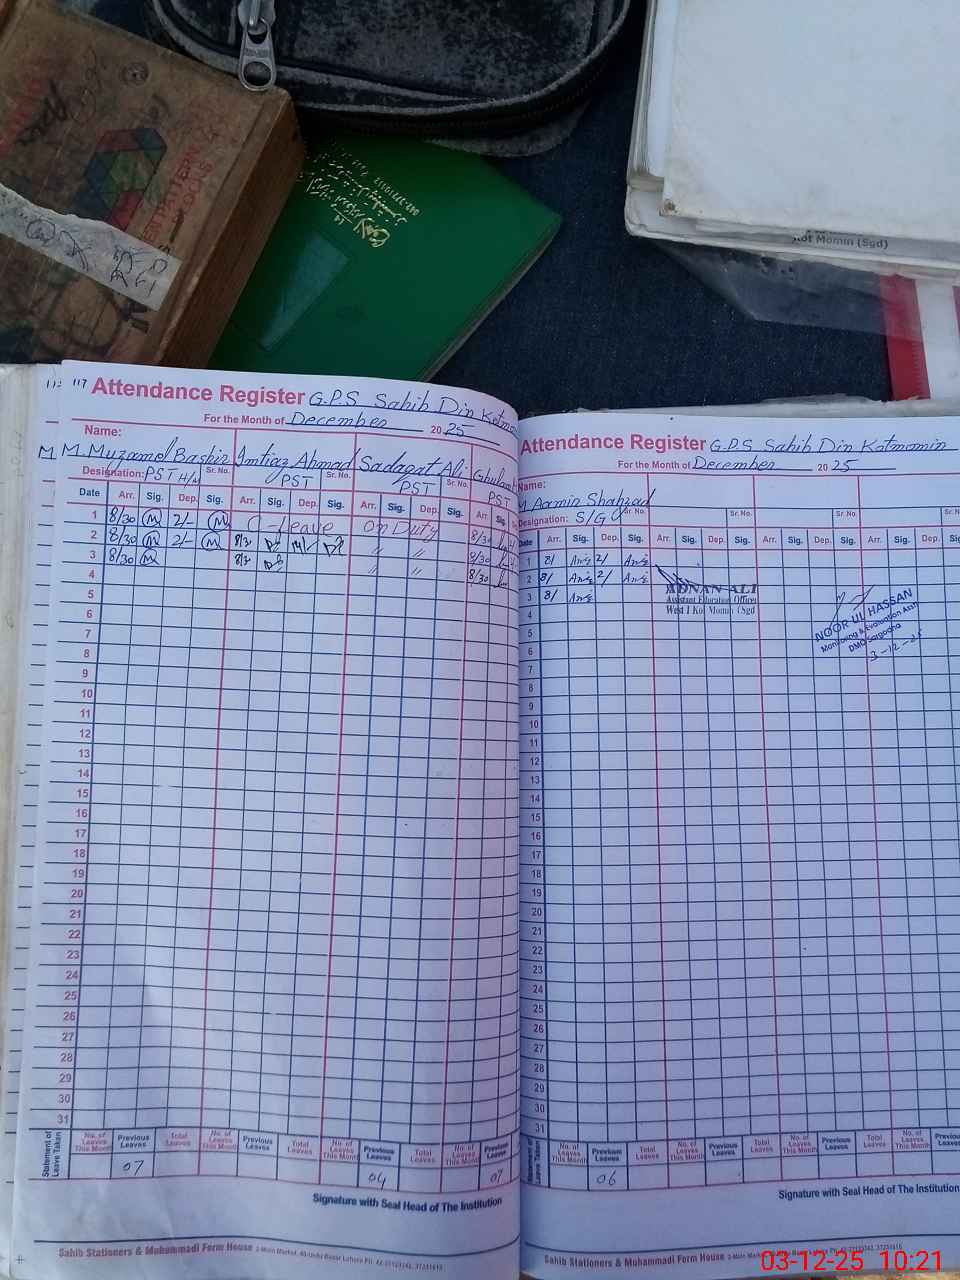 Not Momin (Sgd)
117
Attendance Register G.P.S Sahib Din Kotmo
For the Month of December 2025
Name:
M. Muzamel Bashir Imtiaz Ahmad Sadaqat Ali Ghulam
Designation: PST H/M Sr. No. PST Sr. No. PST Sr. No. PST
Date Arr. Sig. Dep. Sig. Arr. Sig. Dep. Sig. Arr. Sig. Dep. Sig. Arr. Sig.
1 8/30 M 2/- M C-Leave On Duty 8/30
2 8/30 M 2/- M 8/3 〃 〃 8/30
3 8/30 M 8/3 〃 〃 8/30
4
5
6
7
8
9
10
11
12
13
14
15
16
17
18
19
20
21
22
23
24
25
26
27
28
29
30
31
Statement of Leave Taken
No. of Leaves This Month Previous Leaves Total Leaves No. of Leaves This Month Previous Leaves Total Leaves No. of Leaves This Month Previous Leaves Total Leaves No. of Leaves This Month Previous Leaves
07 04 07
Signature with Seal Head of The Institution
Sahib Stationers & Muhammadi Form House
Attendance Register G.P.S Sahib Din Kotmomin
For the Month of December 2025
Name:
M Aamin Shahzad
Designation: S/G Sr. No. Sr. No. Sr. No. Sr. No.
Date Arr. Sig. Dep. Sig. Arr. Sig. Dep. Sig. Arr. Sig. Dep. Sig. Arr. Sig. Dep. Sig.
1 8/ Anis 2/ Anis
2 8/ Anis 2/ Anis
3 8/ Anis
ADNAN ALI
Assistant Education Officer
West I Kot Momin (Sgd
NOOR UL HASSAN
Monitoring & Evaluation Asstt
DMO Sargodha
3-12-25
4
5
6
7
8
9
10
11
12
13
14
15
16
17
18
19
20
21
22
23
24
25
26
27
28
29
30
31
Statement of Leave Taken
No. of Leaves This Month Previous Leaves Total Leaves No. of Leaves This Month Previous Leaves Total Leaves No. of Leaves This Month Previous Leaves Total Leaves No. of Leaves This Month Previous Leaves
06
Signature with Seal Head of The Institution
Sahib Stationers & Muhammadi Form House
03-12-25 10:21